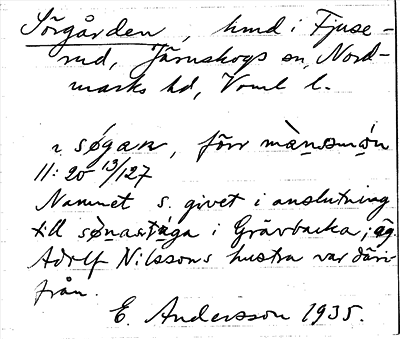 Sörgården, hmd i Fjuse-
rud, Järnskogs sn, Nord-
marks hd, Vrml l.
søgan, förr
11:20 13/127
Namnet s. givet i anslutning
till i Grävbacka; äg.
Adolf Nilssons hustra var däri-
från.
E. Andersson 1935.